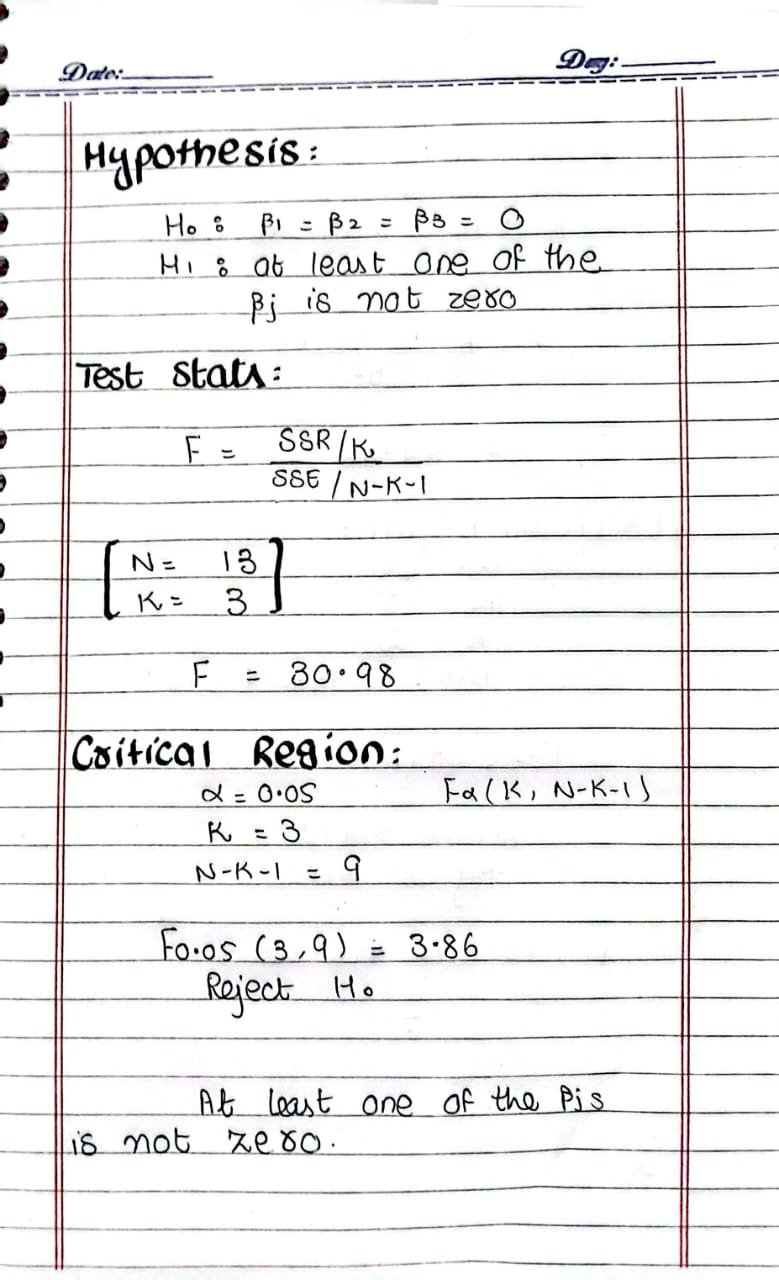 Date: Day:
Hypothesis:
H₀ : β₁ = β₂ = β₃ = 0
H₁ : at least one of the
βj is not zero
Test Stats:
F = SSR/K
SSE / N-K-1
N = 13
K = 3
F = 30.98
Critical Region:
α = 0.05 Fα(K, N-K-1)
K = 3
N-K-1 = 9
F0.05 (3,9) = 3.86
Reject H₀
At least one of the βjs
is not zero.